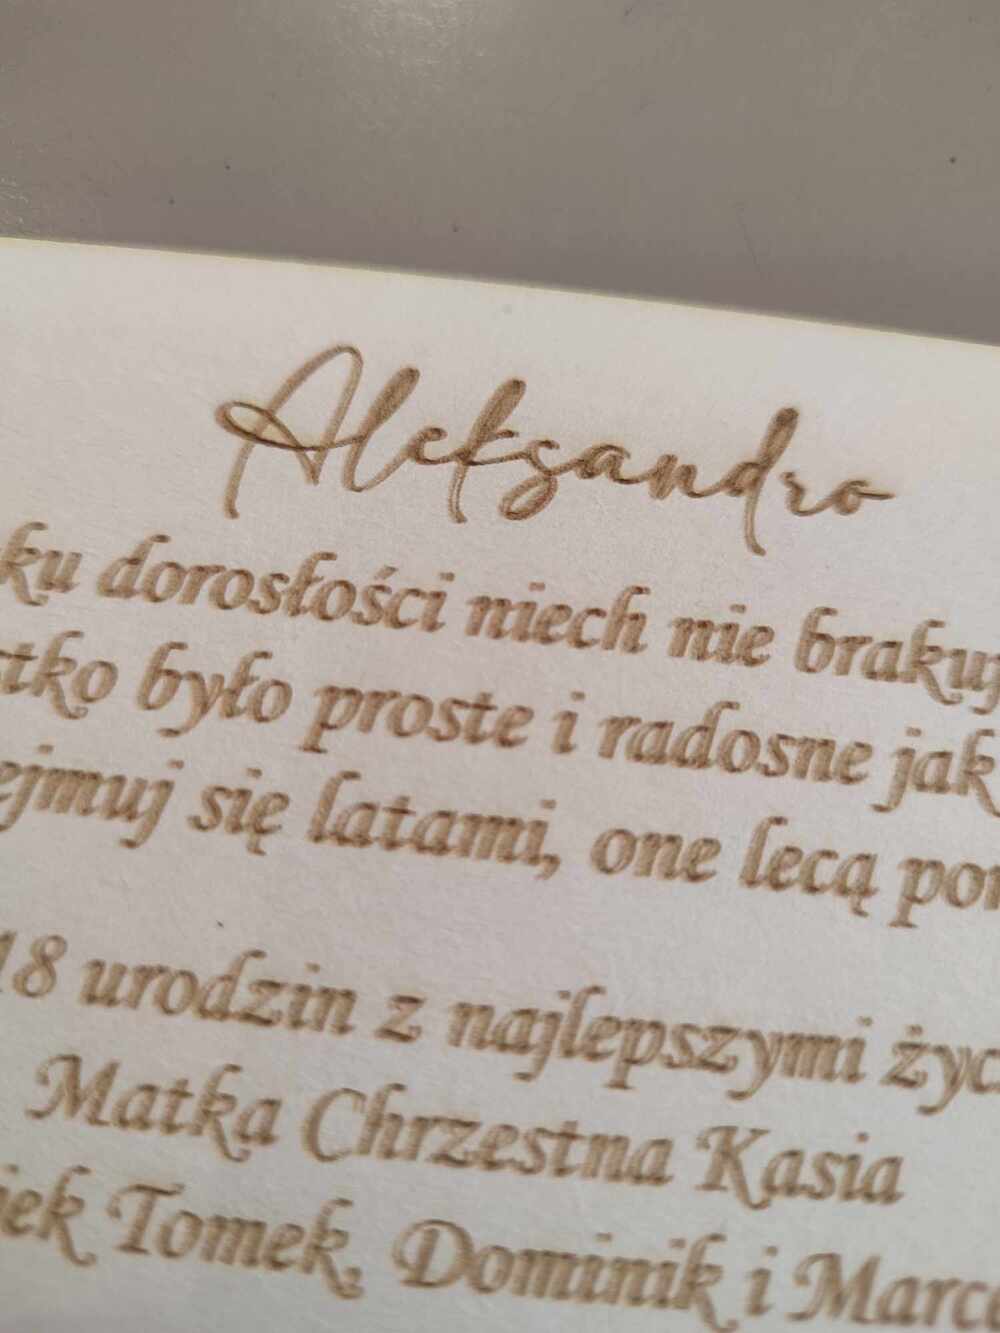 Aleksandro
ku dorosłości niech nie brakuj
stko było proste i radosne jak
ejmuj się latami, one lecą pon
18 urodzin z najlepszymi życ
Matka Chrzestna Kasia
jek Tomek, Dominik i Marce